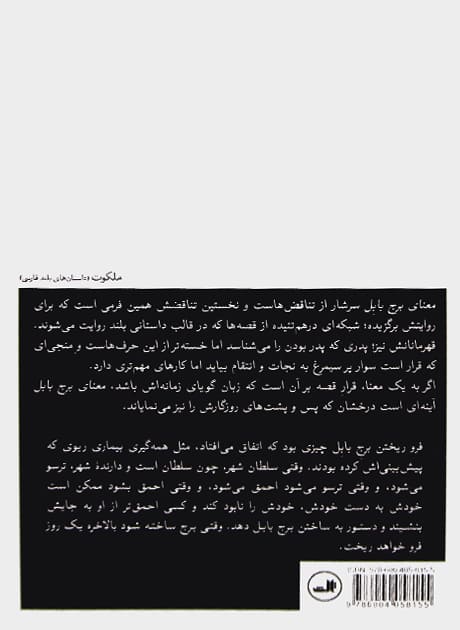 ملکوت (داستان‌های بلند فارسی)
معنای برج بابل سرشار از تناقض‌هاست و نخستین تناقضش همین فرمی است که برای
روایتش برگزیده؛ شبکه‌ای درهم‌تنیده از قصه‌ها که در قالب داستانی بلند روایت می‌شوند.
قهرمانانش نیز؛ پدری که پدر بودن را می‌شناسد اما خسته‌تر از این حرف‌هاست و منجی‌ای که
قرار است سوار بر سیمرغ به نجات و انتقام بیاید اما کارهای مهم‌تری دارد.
اگر به یک معنا، قرار قصه بر آن است که زبان گویای زمانه‌اش باشد، معنای برج بابل
آینه‌ای است درخشان که پس و پشت‌های روزگارش را نیز می‌نمایاند.
فرو ریختن برج بابل چیزی بود که اتفاق می‌افتاد، مثل همه‌گیری بیماری ریوی که
پیش‌بینی‌اش کرده بودند. وقتی سلطان شهر، چون سلطان است و دارندهٔ شهر، ترسو
می‌شود، و وقتی ترسو می‌شود احمق می‌شود، و وقتی احمق بشود ممکن است
خودش به دست خودش، خودش را نابود کند و کسی احمق‌تر از او به جایش
بنشیند و دستور به ساختن برج بابل دهد. وقتی برج ساخته شود بالاخره یک روز
فرو خواهد ریخت.
9 786004 058155